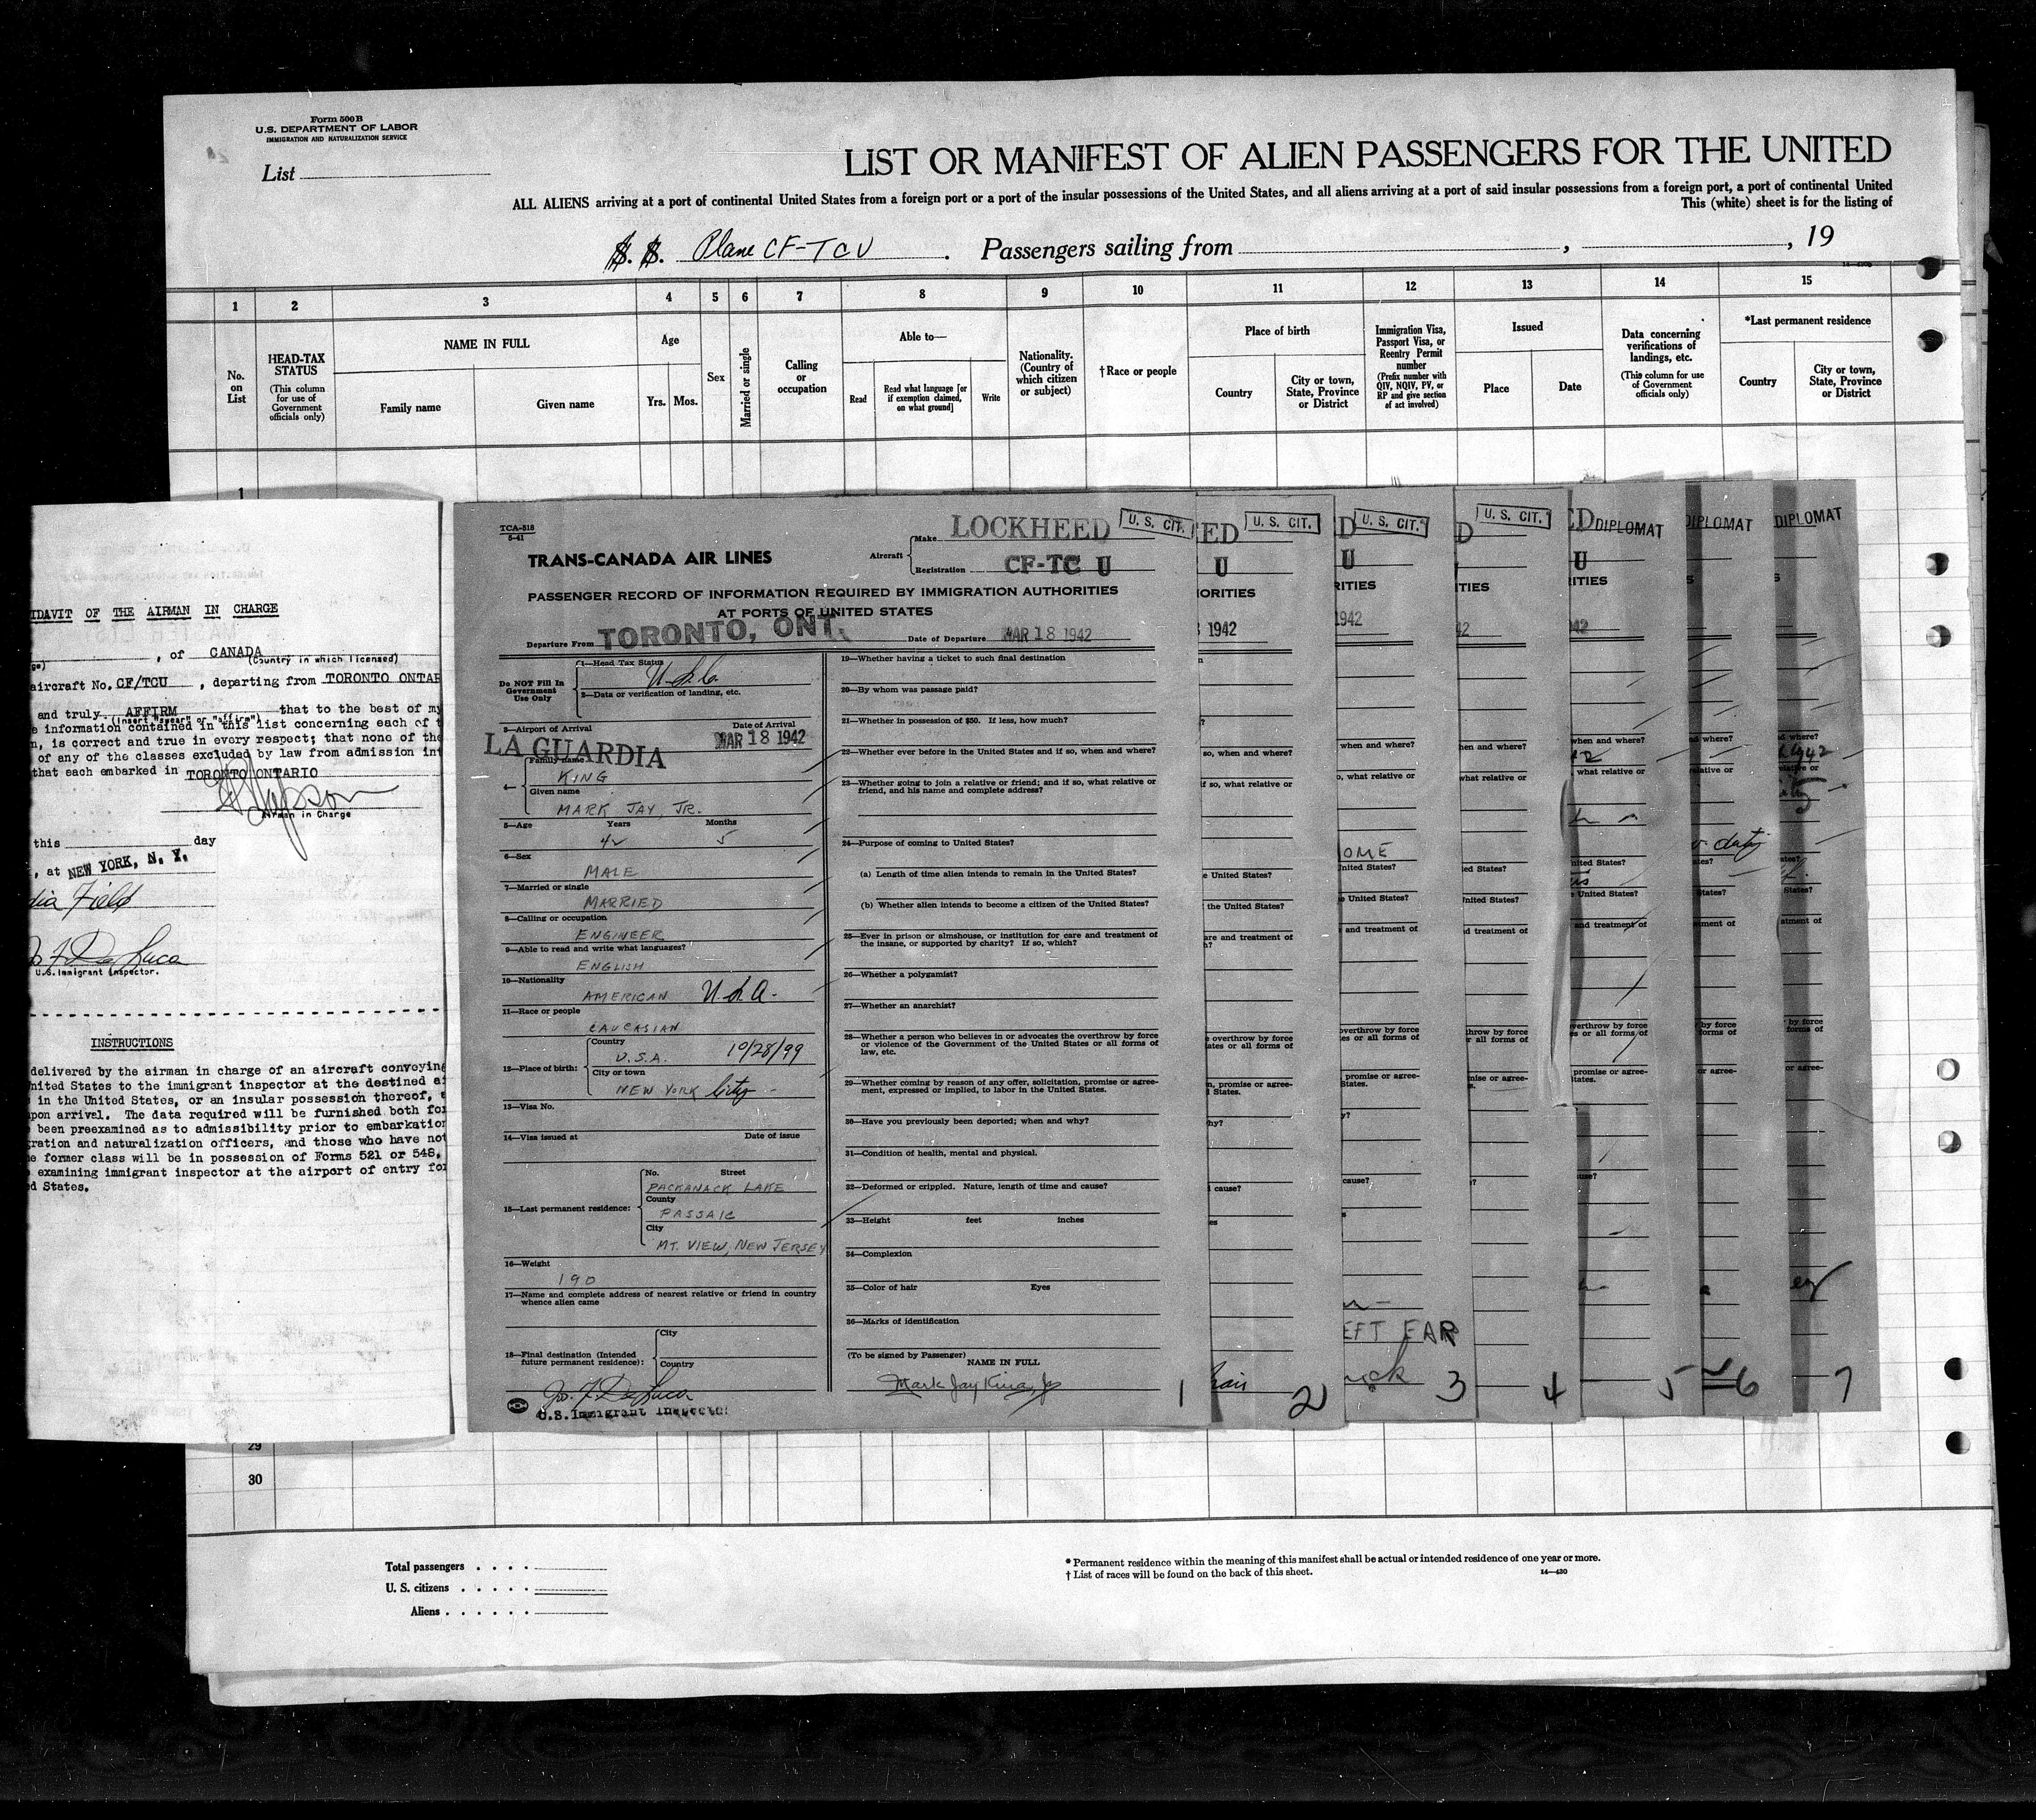 Form 500 B
U.S. DEPARTMENT OF LABOR
IMMIGRATION AND NATURALIZATION SERVICE
List
LIST OR MANIFEST OF ALIEN PASSENGERS FOR THE UNITED
ALL ALIENS arriving at a port of continental United States from a foreign port or a port of the insular possessions of the United States, and all aliens arriving at a port of said insular possessions from a foreign port, a port of continental United
This (white) sheet is for the listing of
S. S. Plane CF-TCU. Passengers sailing from , , 19
1 2 3 4 5 6 7 8 9 10 11 12 13 14 15
No. on List
HEAD-TAX STATUS
(This column for use of Government officials only)
NAME IN FULL
Family name
Given name
Age
Yrs. Mos.
Sex
Married or single
Calling or occupation
Able to—
Read
Read what language [or if exemption claimed, on what ground]
Write
Nationality. (Country of which citizen or subject)
†Race or people
Place of birth
Country
City or town, State, Province or District
Immigration Visa, Passport Visa, or Reentry Permit number
(Prefix number with QIV, NQIV, PV, or RP and give section of act involved)
Issued
Place
Date
Data concerning verifications of landings, etc.
(This column for use of Government officials only)
*Last permanent residence
Country
City or town, State, Province or District
1
IDAVIT OF THE AIRMAN IN CHARGE
, of CANADA
(Country in which licensed)
aircraft No. CF/TCU , departing from TORONTO ONTAR
and truly AFFIRM that to the best of my
(Insert "swear" or "affirm")
e information contained in this list concerning each of t
n, is correct and true in every respect; that none of the
of any of the classes excluded by law from admission int
that each embarked in TORONTO ONTARIO
Airman in Charge
this day
, at NEW YORK, N. Y.
dia Field
Jo. F. DeLuca
U.S. Immigrant Inspector.
INSTRUCTIONS
delivered by the airman in charge of an aircraft conveying
nited States to the immigrant inspector at the destined ai
in the United States, or an insular possession thereof,
pon arrival. The data required will be furnished both for
been preexamined as to admissibility prior to embarkation
gration and naturalization officers, and those who have not
e former class will be in possession of Forms 521 or 548,
examining immigrant inspector at the airport of entry for
d States.
TCA-518
5-41
TRANS-CANADA AIR LINES
Aircraft
Make LOCKHEED
Registration CF-TC U
U. S. CIT.
PASSENGER RECORD OF INFORMATION REQUIRED BY IMMIGRATION AUTHORITIES
AT PORTS OF UNITED STATES
Departure From TORONTO, ONT. Date of Departure MAR 18 1942
Do NOT Fill In Government Use Only
1—Head Tax Status
U.S.C.
2—Data or verification of landing, etc.
3—Airport of Arrival Date of Arrival
LA GUARDIA MAR 18 1942
4—
Family name
KING
Given name
MARK JAY, JR.
5—Age Years Months
42 5
6—Sex
MALE
7—Married or single
MARRIED
8—Calling or occupation
ENGINEER
9—Able to read and write what languages?
ENGLISH
10—Nationality
AMERICAN U.S.A.
11—Race or people
CAUCASIAN
12—Place of birth:
Country
U.S.A. 10/28/99
City or town
NEW YORK City
13—Visa No.
14—Visa issued at Date of issue
15—Last permanent residence:
No. Street
PACKANACK LAKE
County
PASSAIC
City
MT. VIEW, NEW JERSEY
16—Weight
190
17—Name and complete address of nearest relative or friend in country
whence alien came
18—Final destination (Intended future permanent residence):
City
Country
Jo. F. DeLuca
U.S. Immigrant Inspector
19—Whether having a ticket to such final destination
20—By whom was passage paid?
21—Whether in possession of $50. If less, how much?
22—Whether ever before in the United States and if so, when and where?
23—Whether going to join a relative or friend; and if so, what relative or
friend, and his name and complete address?
24—Purpose of coming to United States?
(a) Length of time alien intends to remain in the United States?
(b) Whether alien intends to become a citizen of the United States?
25—Ever in prison or almshouse, or institution for care and treatment of
the insane, or supported by charity? If so, which?
26—Whether a polygamist?
27—Whether an anarchist?
28—Whether a person who believes in or advocates the overthrow by force
or violence of the Government of the United States or all forms of
law, etc.
29—Whether coming by reason of any offer, solicitation, promise or agree-
ment, expressed or implied, to labor in the United States.
30—Have you previously been deported; when and why?
31—Condition of health, mental and physical.
32—Deformed or crippled. Nature, length of time and cause?
33—Height feet inches
34—Complexion
35—Color of hair Eyes
36—Marks of identification
(To be signed by Passenger)
NAME IN FULL
Mark Jay King, Jr
1
U. S. CIT.
U
1942
2
U. S. CIT.
U
1942
OME
EFT EAR
3
U. S. CIT.
4
DIPLOMAT
U
5
DIPLOMAT
duty
6
DIPLOMAT
1942
7
29
30
Total passengers
U. S. citizens
Aliens
* Permanent residence within the meaning of this manifest shall be actual or intended residence of one year or more.
† List of races will be found on the back of this sheet.
14—430